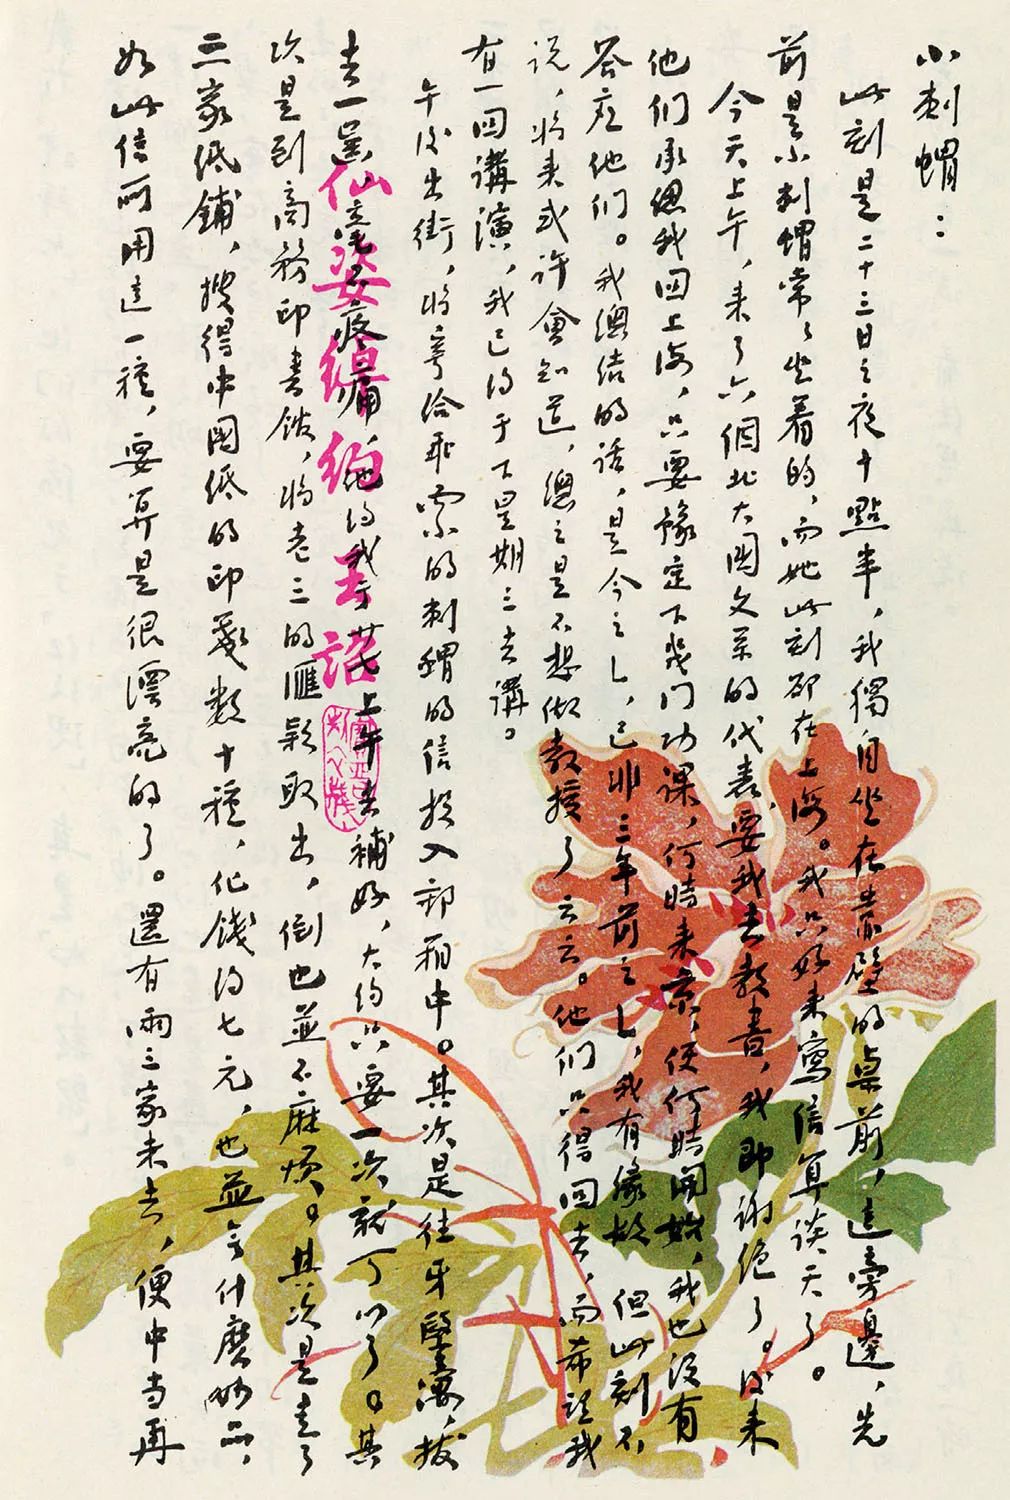 小刺猬：
此刻是二十三日之夜十點半，我獨自坐在靠壁的桌前，這旁邊，先
前是小刺猬常常坐着的，而她此刻却在上海。我只好来寫信算談天了。
今天上午，来了六個北大國文系的代表，要我去教書，我即謝绝了。後来
他们承認我回上海，只要豫定下幾门功課，何時来京，便何時開始，我也没有
答应他们。我總结的話，是今之L，已非三年前之L，我有緣故，但此刻不
说，将来或许會知道，總之是不想做教授了云云。他们只得回去，而希望我
有一回講演，我已約于下星期三去講。
午後出街，将寄给乖而小的刺猬的信投入郵箱中。其次是往牙醫寓，拔
去一齒，毫不疼痛，他約我于廿七上午去補好，大約只要一次就可以了。其
次是到商務印書館，将老三的匯款取出，倒也並不麻烦。其次是走了
三家纸鋪，搜得中國纸的印箋数十種，化錢約七元，也並無什麽妙品，
如此信所用這一種，要算是很漂亮的了。還有兩三家未去，便中当再
仙姿綽約玉